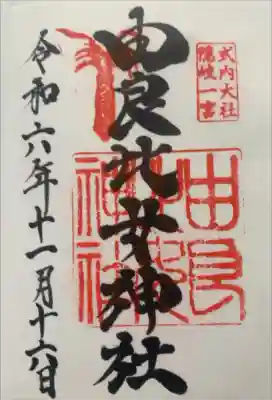 式内大社
隠岐一宮
由良比女神社
令和六年十一月十六日
由良
比女
神社